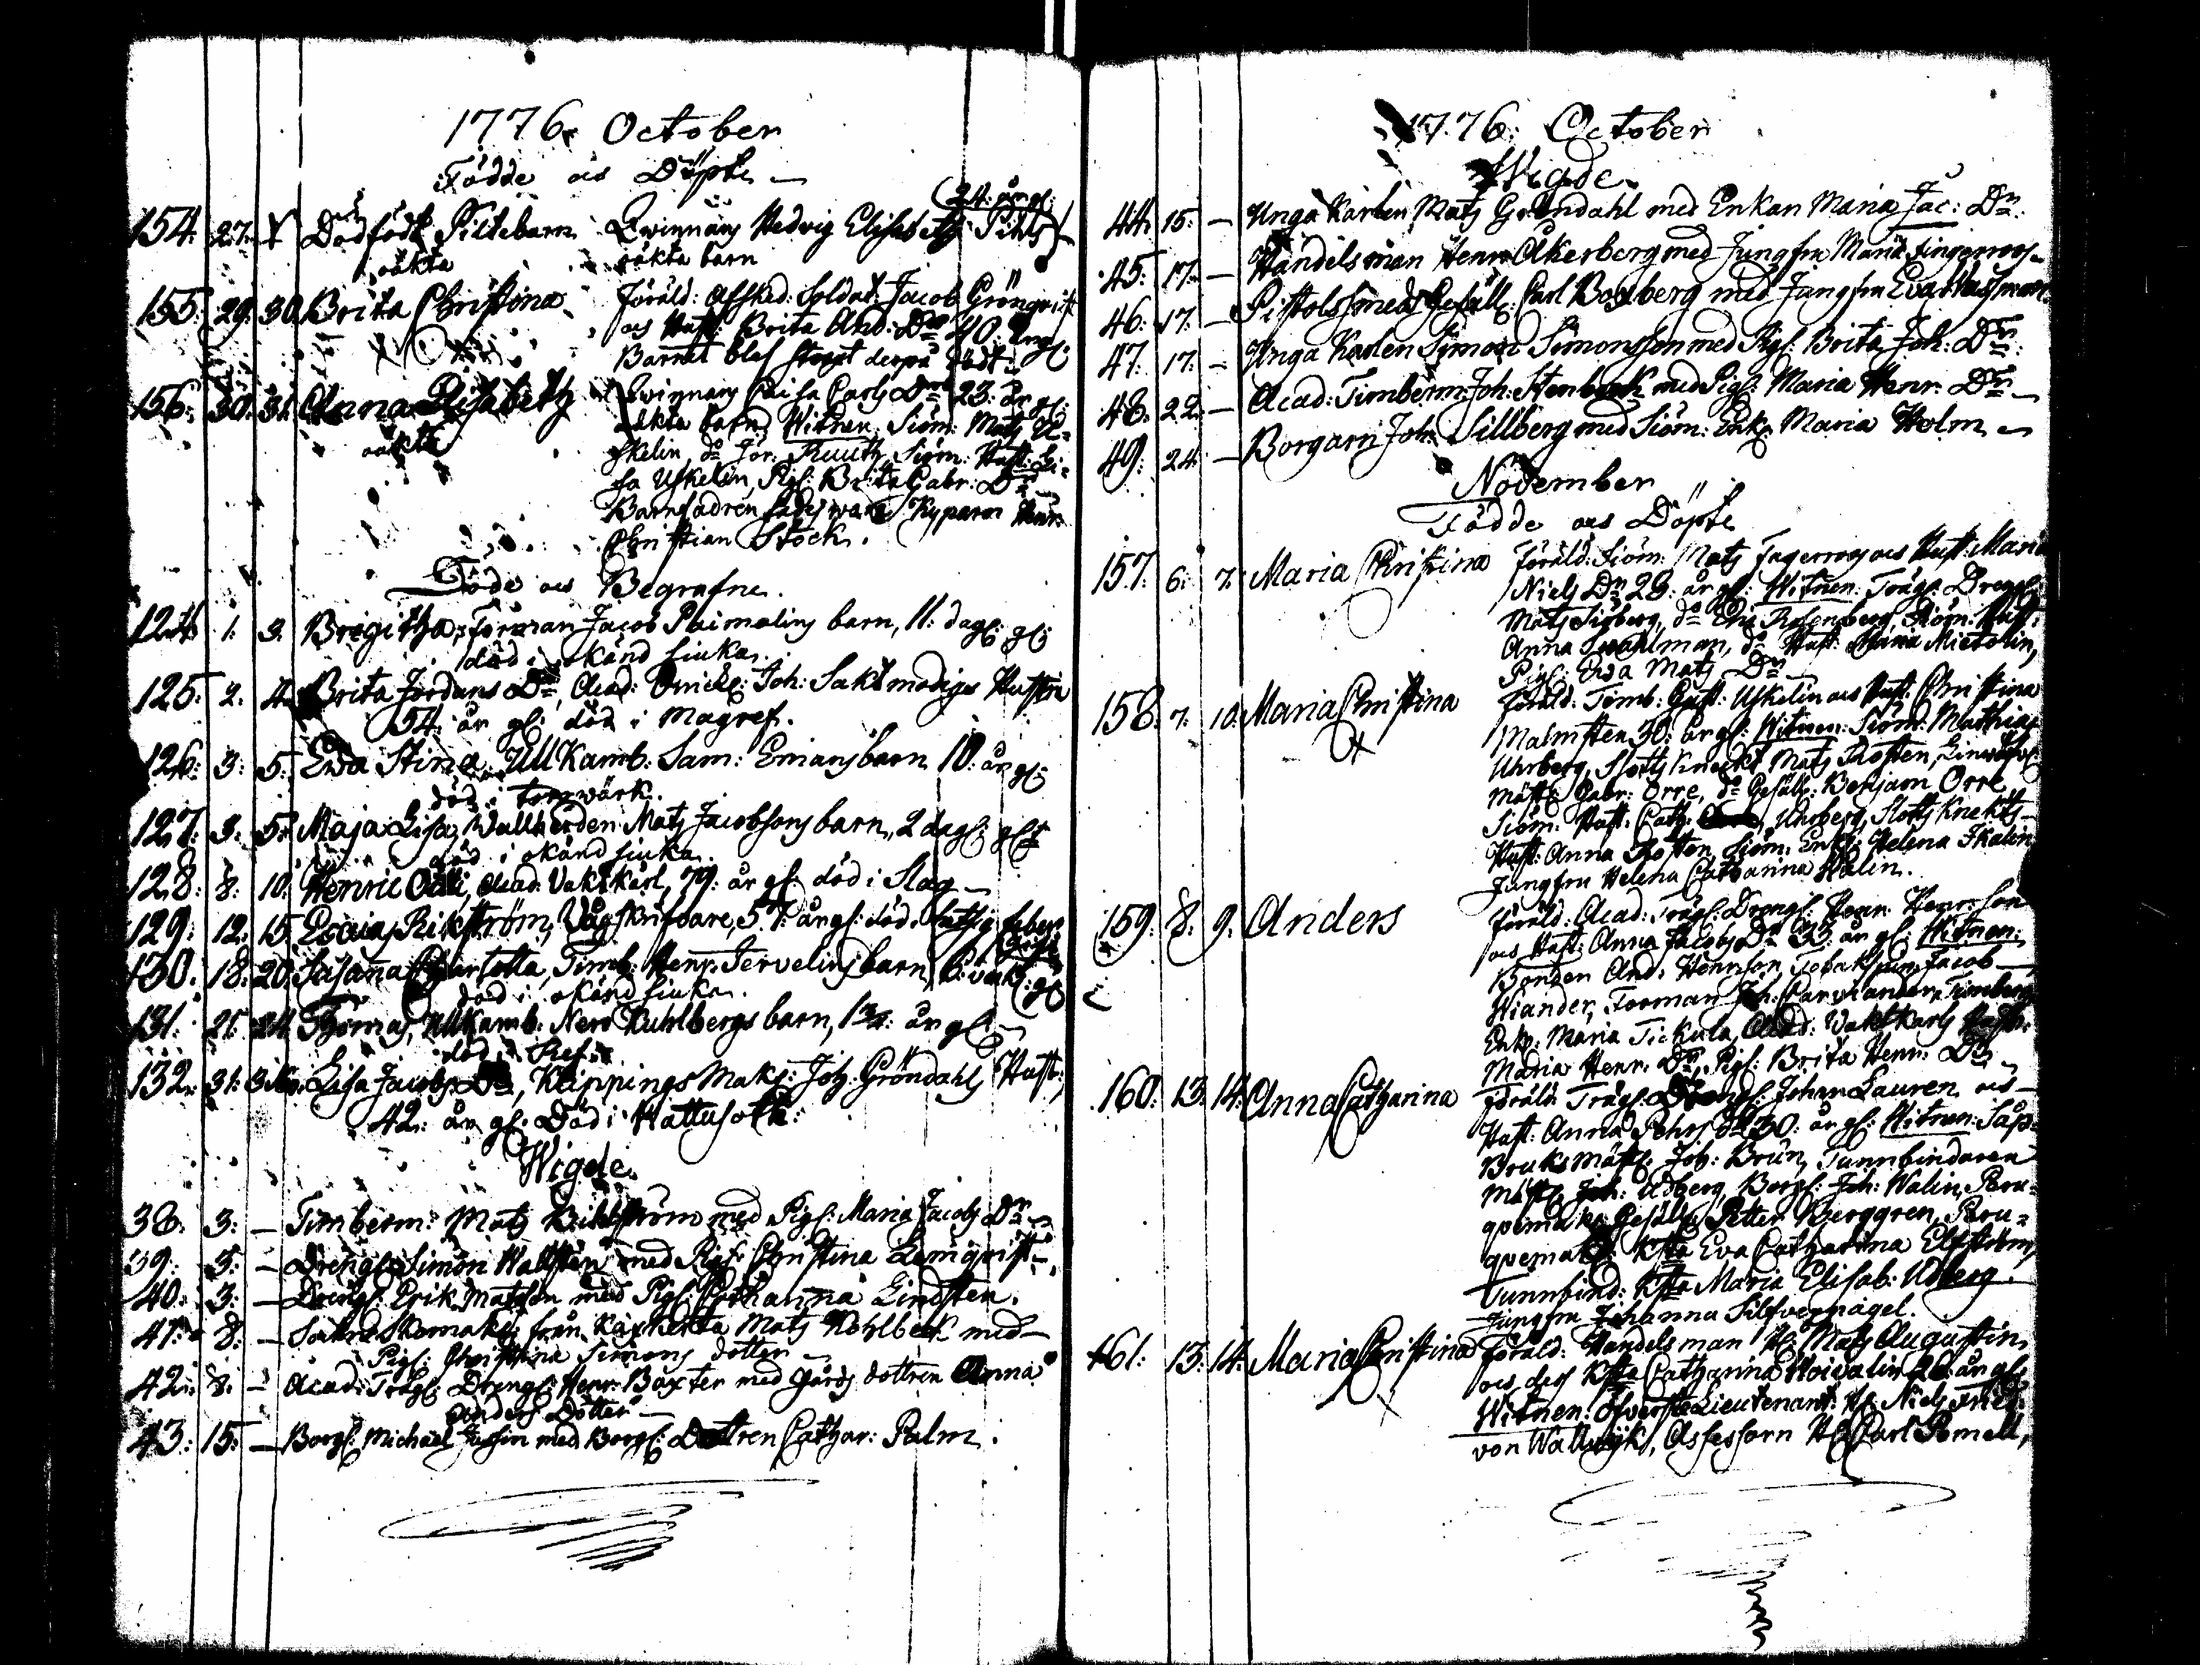 1776. October
Födde och Döpte
24: år gl:
154. 27. Dödfödt Piltebarn Qwinnans Hedvig Elisabeth Pihls
oäkta oäkta barn
155. 29. 30. Brita Christina Föräld: Afsked: Soldat: Jacob Grönqvist
och Hust: Brita And: Dr 40. år gl:
Barnet blef straxt derpå dödt.
156. 30. 31. Anna Elisabeth Qwinnans Caisa Carls Dr 23. år gl:
oäkta oäkta barn Witnen. Siöm: Mats U-
skelin, do Jör: Ruuth, Siöm: Hust: Li-
sa Uskelin, Pig: Brita Gabr: Dr
Barnfadren sades wara Kyparen Henr:
Christian Stock.
Döde och Begrafne.
124. 1. 3. Bregitha, Förman Jacob Paimalins barn, 11: dag: gl:
död i okänd siuka.
125. 2. 4. Brita Jordans Dr, Acad: Johs: Saktmodigs Hustru
54. år gl: död i Magref.
126. 3. 5. Ewa Stina, Ullkamb: Sam: Emans barn 10. år gl:
död i torrwärk.
127. 3. 5. Maja Lisa, Wallherden Mats Jacobsons barn, 2 dag: gl:
död i okänd siuka.
128. 8. 10. Henric Acad. Vaktkarl, 79: år gl: död i Slag
129. 12. 15. Esaias Rikström, Vågskrifvare, 57: år gl: död i hetsig feber
130. 18. 20. Susanna Charlotta, Timb: Henr. Tervelins barn, 6. veck: gl:
död i okänd siuka.
131. 21. 24. Thomas, Ullkamb: Kuhlbergs barn, 1 3/4: år gl:
död i Ref.
132. 31. Lisa Jacobs Dr, Klippings Mak: Joh: Gröndahls Hustr:
42. år gl. Död i Hattusott.
Wigde.
38. 3. — Timberm: Mats med Pig: Maria Jacobs Dr
39. 3. — Dreng: Simon Wallsten med Pig: Christina Lemqvist
40. 3. — Dreng: Erik Matsson med Pig: Catharina Lindsten.
41. 8. — Sokne Skomak: från Kaxkerta Mats Kohlbeck med
Pig: Christina Simons dotter
42. 8. — Acad: Trägl: Dreng: Henr: Baxter med gårds dottren Anna
Anders Dotter
43. 15. — Borg: Michael med Borg: Dottren Cathar: Palm.
1776. October
Wigde.
44. 15. — Unga Karlen Mats Gröndahl med Enkan Maria Jac: Dr.
45. 17. — Handelsman Henr Åkerberg med Jungfru Maria Fingerroos
46. 17. — Pistolsmeds Gesäll: Carl Boxberg med Jungfru Eva Hagman
47. 17. — Unga Karlen Simon Simonsson med Pig: Brita Joh: Dr.
48. 22. — Acad: Timberm: Joh: Stenbeck med Pig: Maria Henr: Dr
49. 24. — Borgaren Joh: Sillberg med Siöm: Enk: Maria Holm
November
Födde och Döpte
157. 6. 7. Maria Christina Föräld: Siöm: Mats Fagerroos och Hust: Maria
Niels Dr 28: år gl: Witnen. Trägl: Dreng:
Mats Sigberg, do Eric Rosenberg, Siöm: Hust:
Anna Swahlman, do Hust: Maria Mietolin,
Pig: Ewa Mats Dr
158. 7. 10. Maria Christina Föräld: Timb: Gust: Uskelin och Hust: Christina
Malmsten 30: år gl: Witnen: Siöm: Mathias
Uhrberg, Slotts Knecht Mats Rosten,
Mäst: Gabr: Orre, do Gesäll: Benjam Orre
Siöm: Hust: Cath: Uhrberg, Slotts Knekts
Hust: Anna Rosten, Siöm: Enk: Helena Ikalin
Jungfru Helena Catharina Walin.
159. 8. 9. Anders Föräld: Acad: Trägl: Dreng: Henr: Henrsson
och Hust: Anna Jacobs Dr 33: år gl: Witnen:
Bonden And: Henrsson, Jacob
Wiander, Forman Joh: Timberm:
Enk: Maria Tickula, Acad: Vaktkarls Hustr:
Maria Henr: Dr, Pig: Brita Henr: Dr
160. 13. 14. Anna Catharina Föräld: Trägl: Dreng: Johan Lauren och
Hust: Anna Pehrs Dr 30: år gl: Witnen: Såp-
Bruks Mäst: Joh: Brun, Tunnbindaren
Mäst: Joh: Udberg, Borg: Joh: Walin, Peru-
quemak: Gesäll: Petter Burggren, Peru-
quemak: K:sta Eva Catharina Elfström,
Tunnbind: K:sta Maria Elisab: Udberg.
Jungfru Johanna Silfvernagel.
161. 13. 14. Maria Christina Föräld: Handelsman Hr Mats Augustin
och des K:sta Catharina Hoivalin 26 år gl:
Witnen: Öfverste Lieutenant: Hr Niels Fried:
von Wallwijk, Assessorn Hr Carl Pomell,